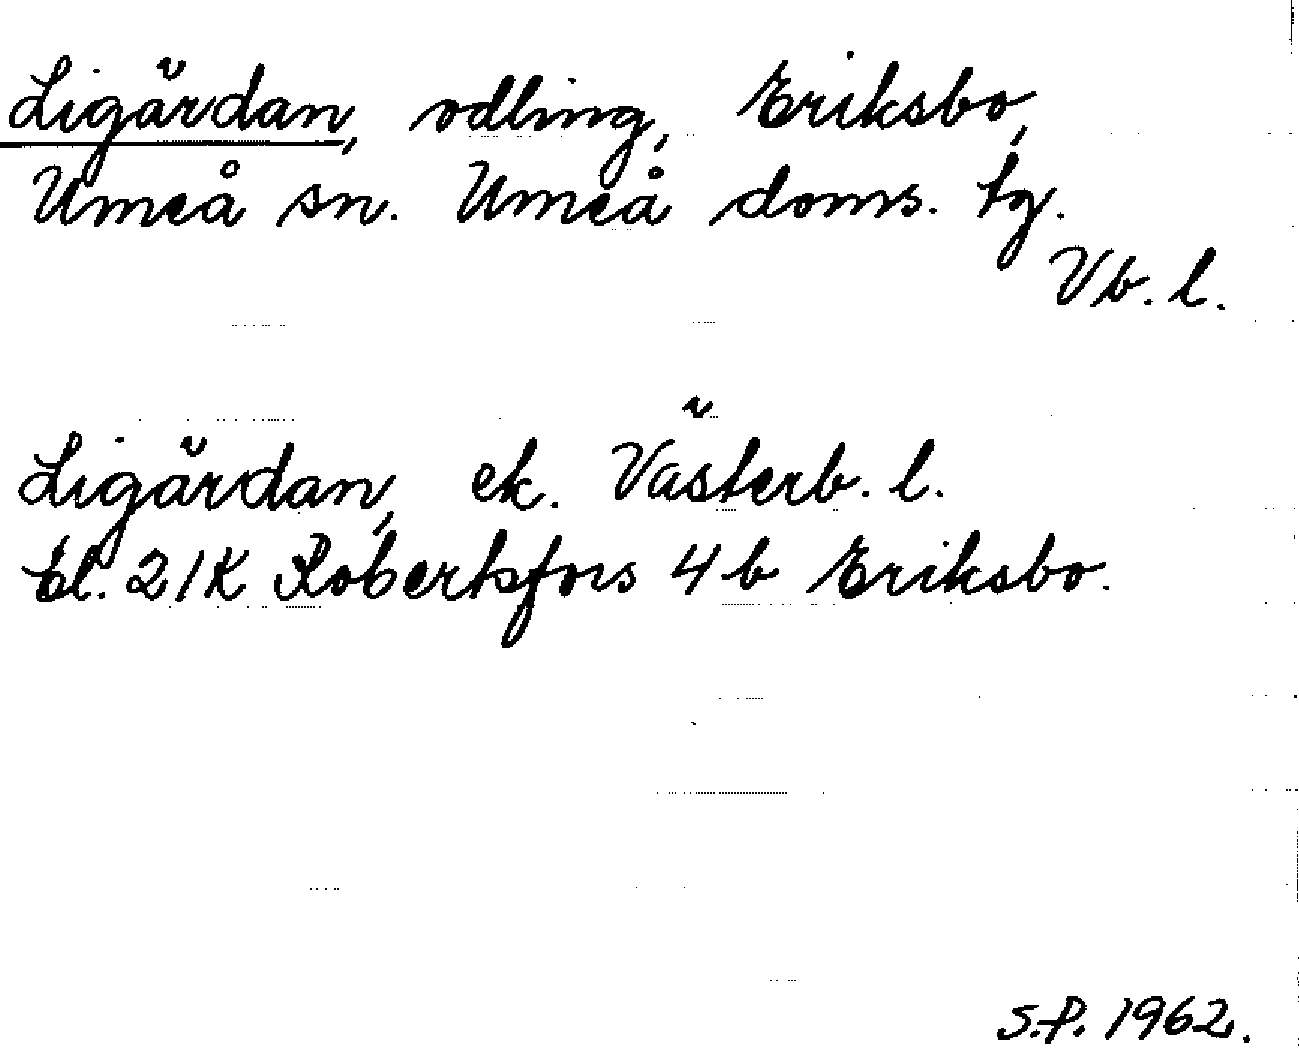 Ligärdan, odling, Eriksbo,
Umeå sn. Umeå doms. tg.
Vb. l.
Ligärdan, ek. Västerb. l.
Bl. 21K Robertsfors 4 b Eriksbo.
S.P. 1962.